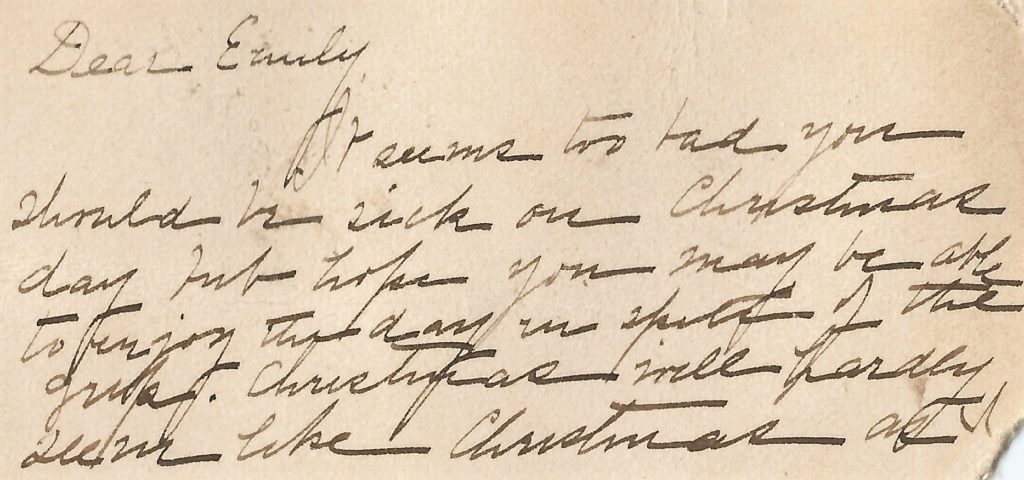 Dear Emily
It seems too bad you
should be sick on Christmas
day but hope you may be able
to enjoy the day in spite of the
grip. Christmas will hardly
seem like Christmas at